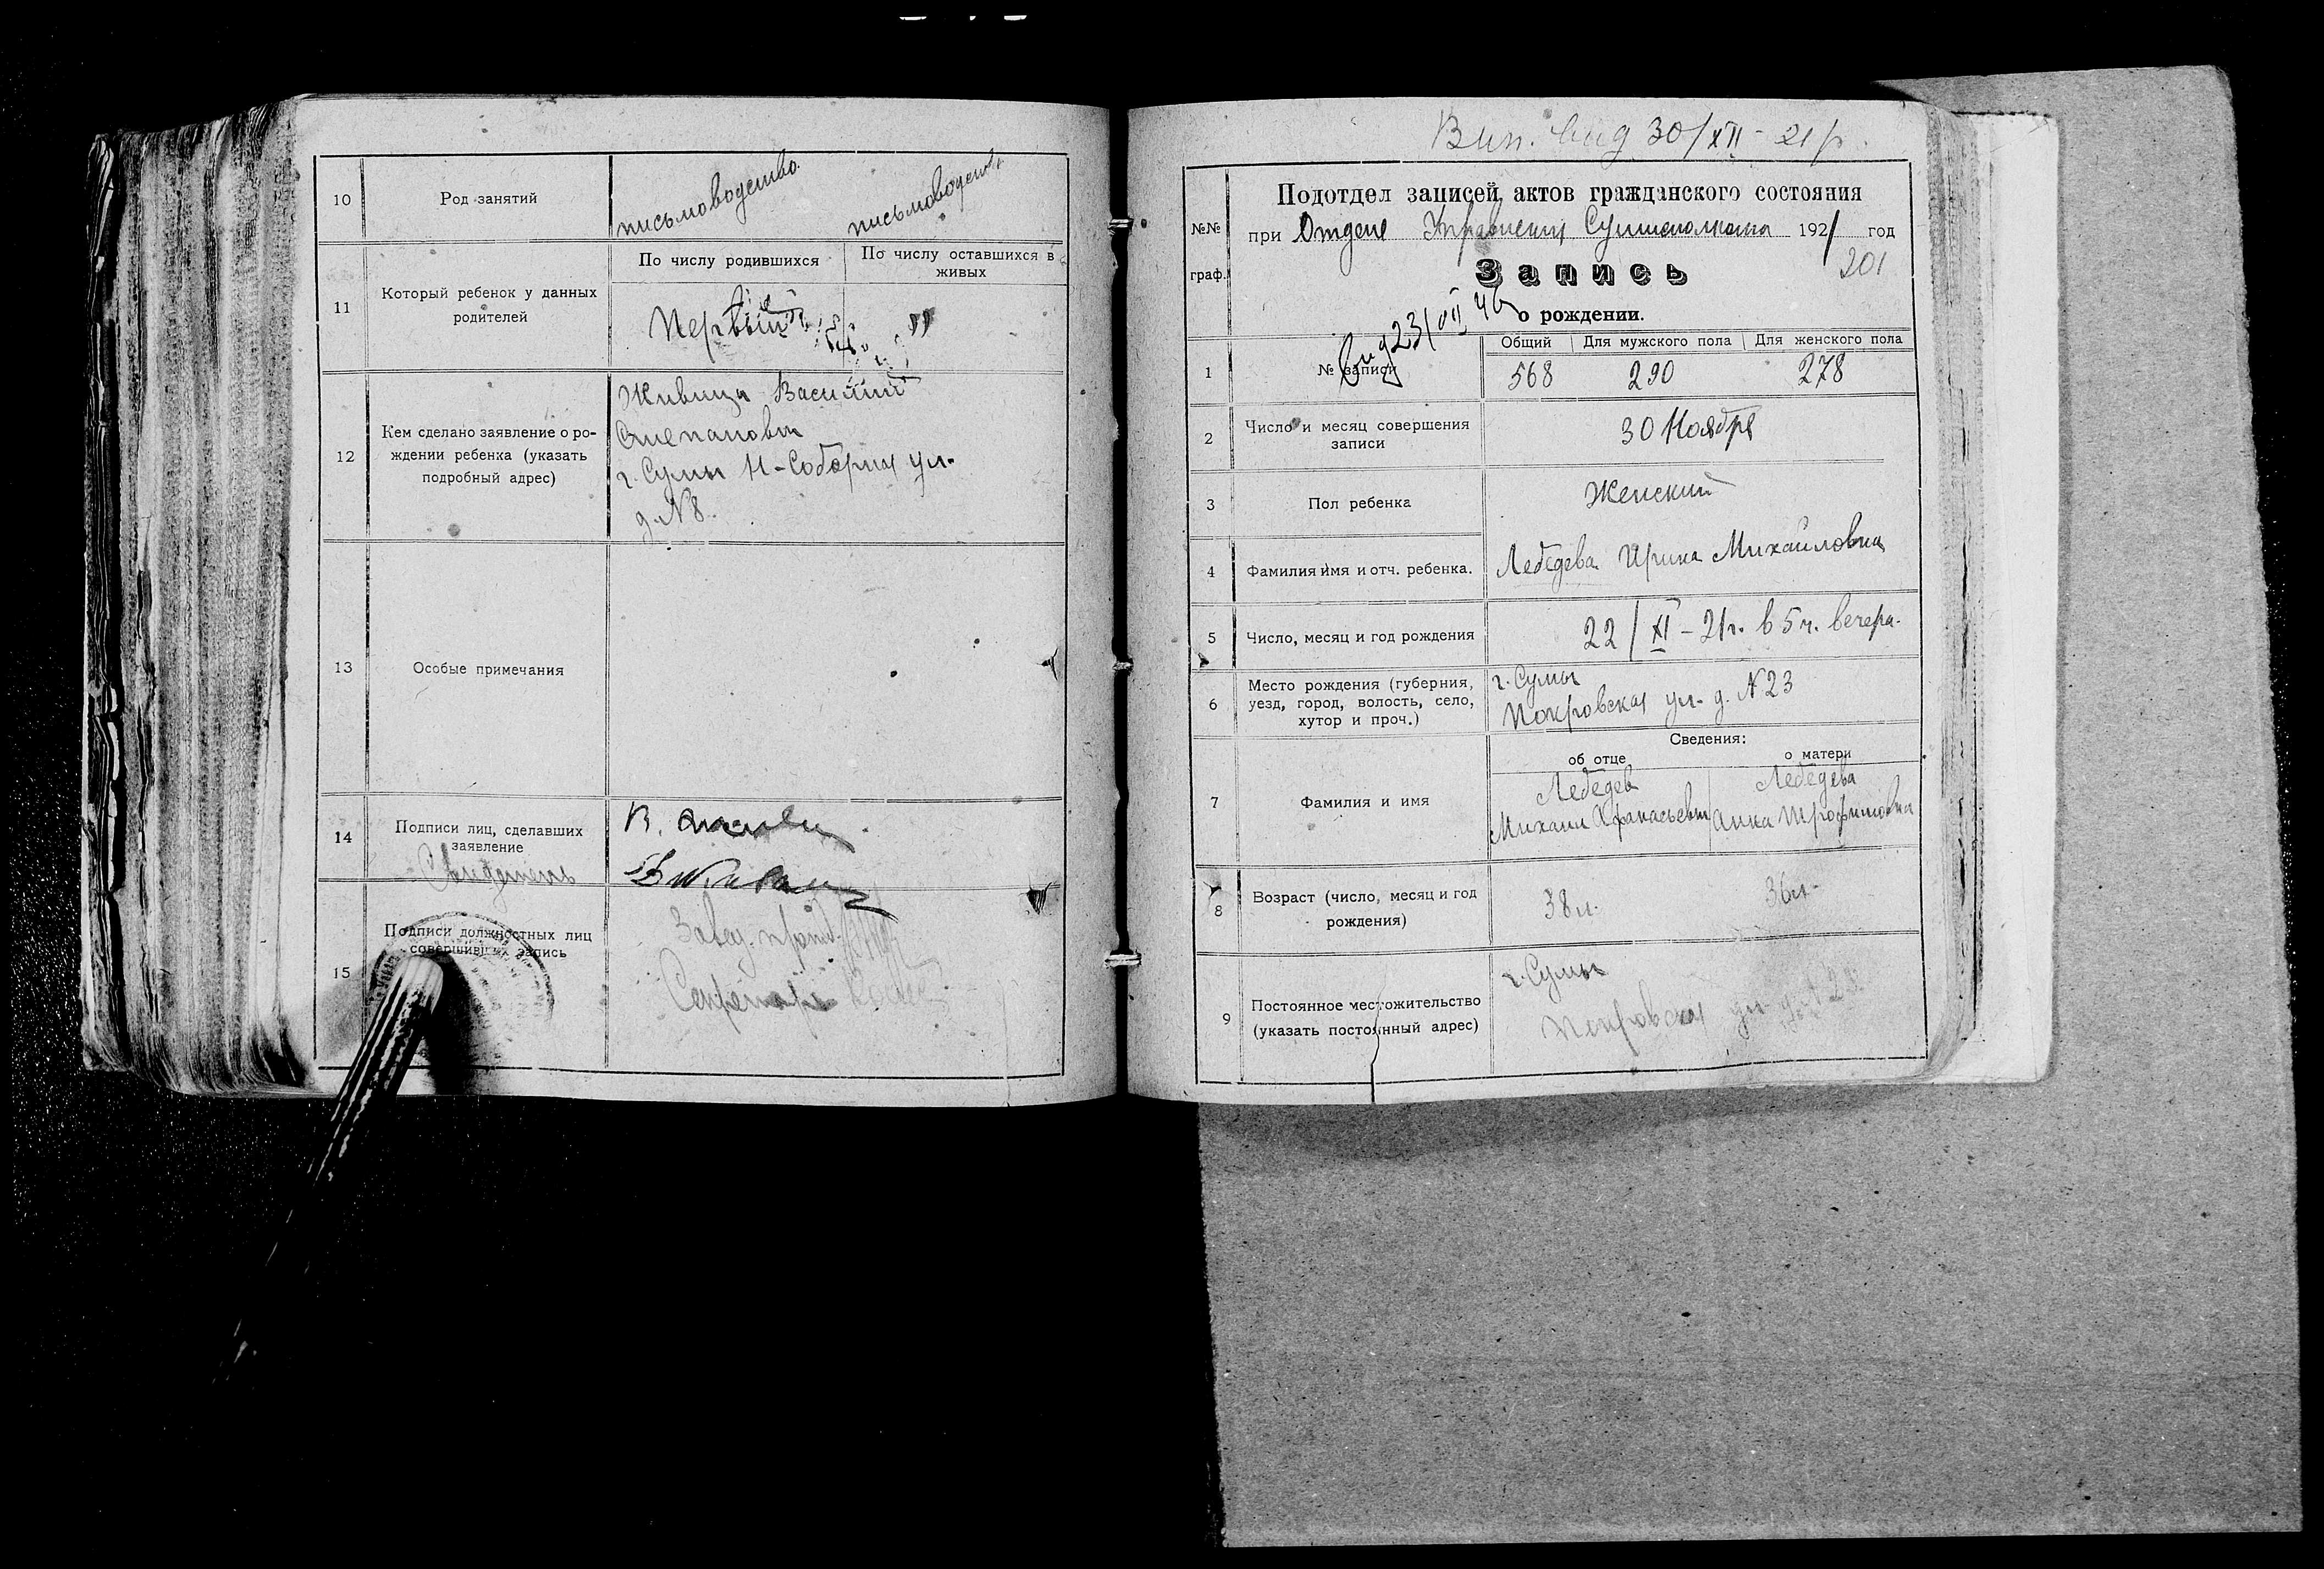 10
Род занятий
письмоводство.
письмоводств.
11
Который ребенок у данных
родителей
По числу родившихся
По числу оставшихся в
живых
Первый
"
12
Кем сделано заявление о ро-
ждении ребенка (указать
подробный адрес)
Живица Василий
Степанович
г. Сумы Н-Соборная ул.
д. N 8.
13
Особые примечания
14
Подписи лиц, сделавших
заявление
Свидетель
15
Подписи должностных лиц
совершивших запись
Завед.
Секретарь
Вип. вид 30/XII - 21 р.
№№
граф.
Подотдел записей актов гражданского состояния
при Отделе Управления Сумисполкома 1921 год
201
Запись
о рождении.
Вид 23/VII 46
1
№ записи
Общий
Для мужского пола
Для женского пола
568
290
278
2
Число и месяц совершения
записи
30 Ноября
3
Пол ребенка
Женский
4
Фамилия имя и отч. ребенка.
Лебедева Ирина Михайловна
5
Число, месяц и год рождения
22/XI - 21г. в 5 ч. вечера.
6
Место рождения (губерния,
уезд, город, волость, село,
хутор и проч.)
г. Сумы
Покровская ул. д. N 23
7
Фамилия и имя
Сведения:
об отце
о матери
Лебедев
Михаил Афанасьевич
Лебедева
Анна Трофимовна
8
Возраст (число, месяц и год
рождения)
38 л.
36 л.
9
Постоянное местожительство
(указать постоянный адрес)
г. Сумы
Покровская ул. д. N 23